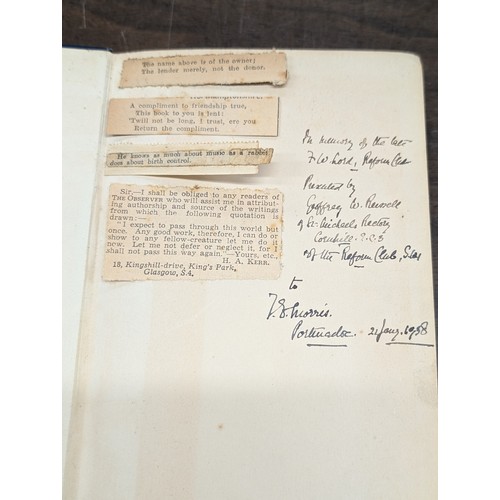 The name above is of the owner;
The lender merely, not the donor.
A compliment to friendship true,
This book to you is lent:
'Twill not be long, I trust, ere you
Return the compliment.
He knows as much about music as a rabbit
does about birth control.
Sir,—I shall be obliged to any readers of
THE OBSERVER who will assist me in attribut-
ing authorship and source of the writings
from which the following quotation is
drawn:—
"I expect to pass through this world but
once. Any good work, therefore, I can do or
show to any fellow-creature let me do it
now. Let me not defer or neglect it, for I
shall not pass this way again."—Yours, etc.,
H. A. KERR.
18, Kingshill-drive, King's Park,
Glasgow, S.4.
In memory of the late
F W Lord, Reform Club
Presented by
Geoffrey W. Rowell
of St. Michaels Rectory
Cornhill E.C.3
of the Reform Club, S.W.1
to
Morris.
Portmadoc. 21 Jany. 1958